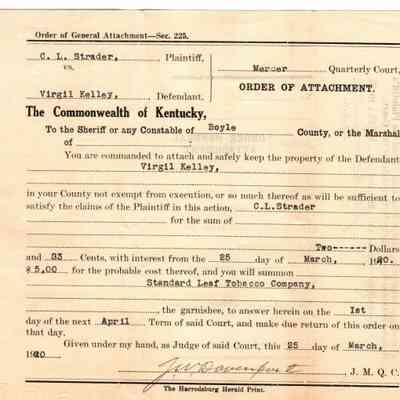 Order of General Attachment—Sec. 225.
C. L. Strader, Plaintiff,
vs. Mercer Quarterly Court,
Virgil Kelley, Defendant. ORDER OF ATTACHMENT.
The Commonwealth of Kentucky,
To the Sheriff or any Constable of Boyle County, or the Marshal
of :
You are commanded to attach and safely keep the property of the Defendant
Virgil Kelley,
in your County not exempt from execution, or so much thereof as will be sufficient to
satisfy the claims of the Plaintiff in this action, C.L.Strader
for the sum of
Two------ Dollars
and 33 Cents, with interest from the 25 day of March, 1920.
$ 5.00 for the probable cost thereof, and you will summon
Standard Leaf Tobacco Company,
, the garnishee, to answer herein on the 1st
day of the next April Term of said Court, and make due return of this order on
that day.
Given under my hand, as Judge of said Court, this 25 day of March,
1920
J.W. Davenport , J. M. Q. C.
The Harrodsburg Herald Print.